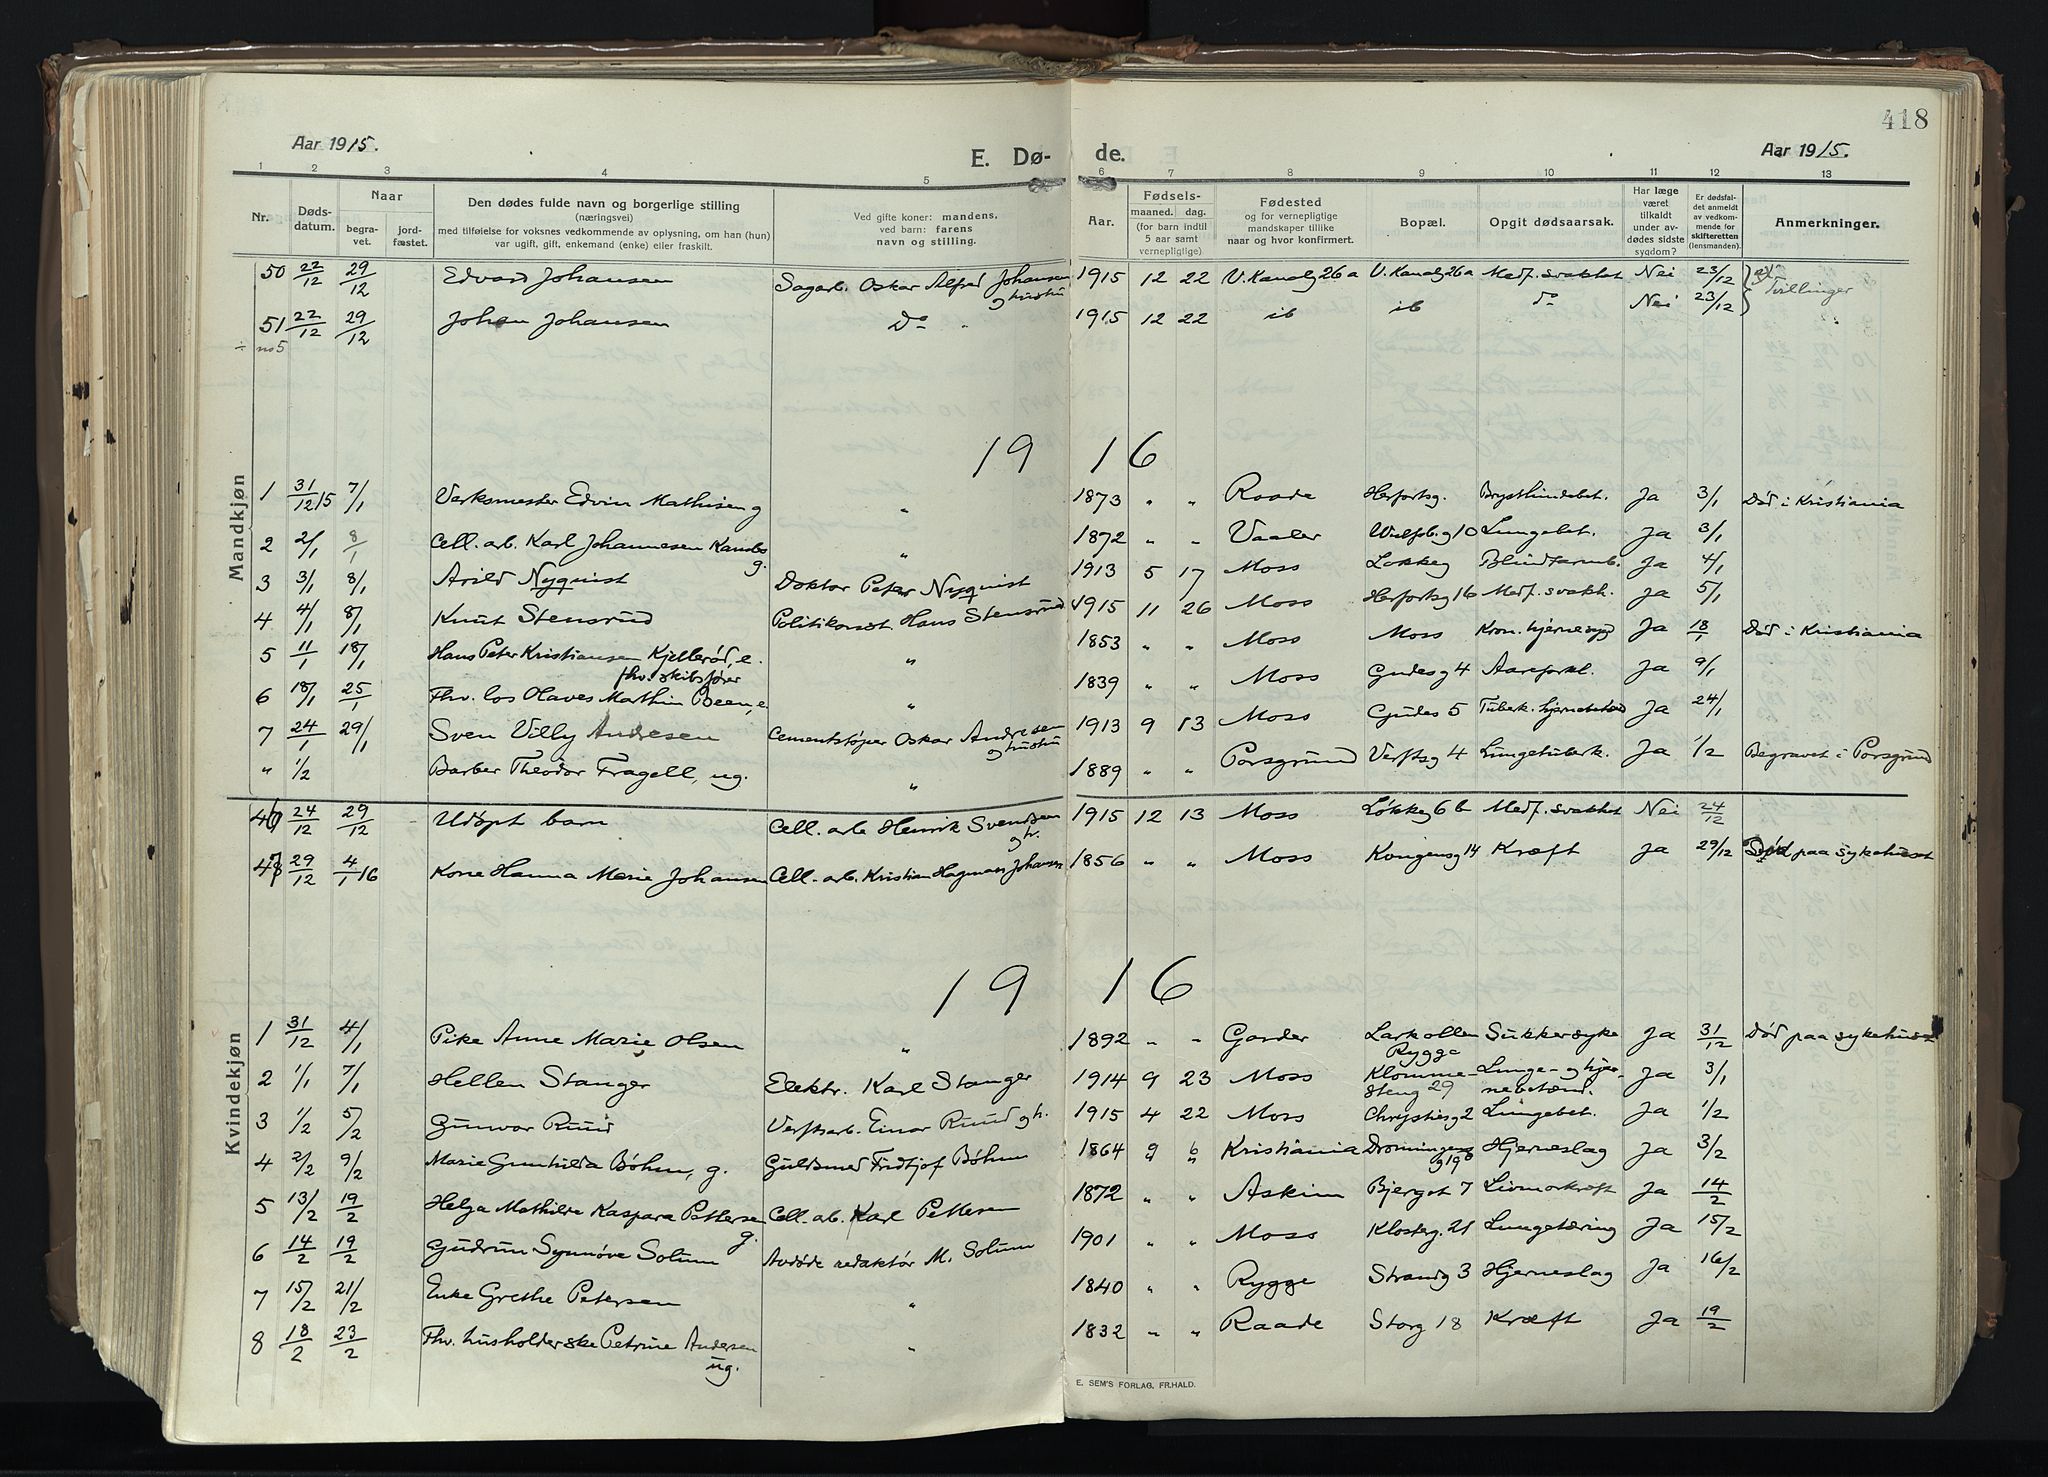 418
Aar 1915.
E. Dø- de.
Aar 1915.
1 2 3 4 5 6 7 8 9 10 11 12 13
Nr. Døds-datum. Naar begra-vet. jord-fæstet. Den dødes fulde navn og borgerlige stilling (næringsvei) med tilføielse for voksnes vedkommende av oplysning, om han (hun) var ugift, gift, enkemand (enke) eller fraskilt. Ved gifte koner: mandens, ved barn: farens navn og stilling. Aar. Fødsels- maaned. dag. (for barn indtil 5 aar samt vernepligtige) Fødested og for vernepligtige mandskaper tillike naar og hvor konfirmert. Bopæl. Opgit dødsaarsak. Har læge været tilkaldt under av-dødes sidste sygdom? Er dødsfal-det anmeldt av vedkom-mende for skifteretten (lensmanden). Anmerkninger.
50 22/12 29/12 Edvard Johansen Sagarb. Oskar Alfred Johansen og hustru 1915 12 22 V. Kanalg 26a V. Kanalg 26a Medf. svakhet Nei 23/12 Tvillinger
51 22/12 29/12 Johan Johansen Do " 1915 12 22 ib ib do Nei 23/12
÷ no 5
19 16
Mandkjøn
1 31/12 15 7/1 Verksmester Edvin Mathisen g " 1873 " " Raade Herfortsg. Brysthindebet. Ja 3/1 Død i Kristiania
2 2/1 8/1 Cell. arb. Karl Johannesen g. " 1872 " " Vaaler 10 Lungebet. Ja 3/1
3 3/1 8/1 Arild Nyquist Doktor Peter Nyquist 1913 5 17 Moss Løkkeg Blindtarmb. Ja 4/1
4 4/1 8/1 Knut Stensrud Politikonst. Hans Stensrud 1915 11 26 Moss Herfortsg 16 Medf. svakh. Ja 5/1
5 11/1 18/1 Hans Peter Kristiansen Kjellerød, e. fhv. skibsfører " 1853 " " Moss Moss Kron. hjernesygd Ja 18/1 Død i Kristiania
6 18/1 25/1 Fhv. los Olaves Mathin Been, e. " 1839 " " Moss Gudesg 4 Aareforkl. Ja 9/1
7 24/1 29/1 Sven Villy Andresen Cementstøper Oskar Andresen og hustru 1913 9 13 Moss Gudes 5 Tuberk. Ja 24/1
" 1/2 Barber Theodor Fragell, ug. " 1889 " " Porsgrund Verftsg 4 Lungetuberk. Ja 1/2 Begravet i Porsgrund
46 24/12 29/12 Udøpt barn Cell. arb Henrik Svendsen og h. 1915 12 13 Moss Løkkeg 6 b Medf. svakhet Nei 24/12
47 29/12 4/1 16 Kone Hanna Marie Johansen Cell. arb. Kristian Hagman Johansen 1856 " " Moss Kongensg 14 Kræft Ja 29/12 Død paa sykehuset
19 16
Kvindekjøn
1 31/12 4/1 Pike Anne Marie Olsen " 1892 " " Gorder Larkollen Rygge Sukkersyke Ja 31/12 Død paa sykehuset
2 1/1 7/1 Hellen Stanger Elektr. Karl Stanger 1914 9 23 Moss Klomme-steng 29 Lunge- og hjer-nebetænd. Ja 3/1
3 1/2 5/2 Gunvor Ruud Verftsarb. Einar Ruud og h. 1915 4 22 Moss Chrystiesg 2 Lungebet. Ja 1/2
4 2/2 9/2 Marie Gunhilda Bøhm, g. Guldsmed Fridtjof Bøhm 1864 9 6 Kristiania Dronningensg 19 b Hjerneslag Ja 3/2
5 13/2 19/2 Helga Mathilde Kaspara Pettersen g. Cell. arb. Karl Pettersen 1872 " " Askim Bjerget 7 Livmorkræft Ja 14/2
6 14/2 19/2 Gudrun Synnøve Solum Avdøde redaktør M. Solum 1901 " " Moss Klosterg. 21 Lungetæring Ja 15/2
7 15/2 21/2 Enke Grethe Petersen " 1840 " " Rygge Strandg 3 Hjerneslag Ja 16/2
8 18/2 23/2 Fhv. husholderske Petrine Andersen ug. " 1832 " " Raade Storg 18 Kræft Ja 19/2
E. SEM'S FORLAG, FR.HALD.